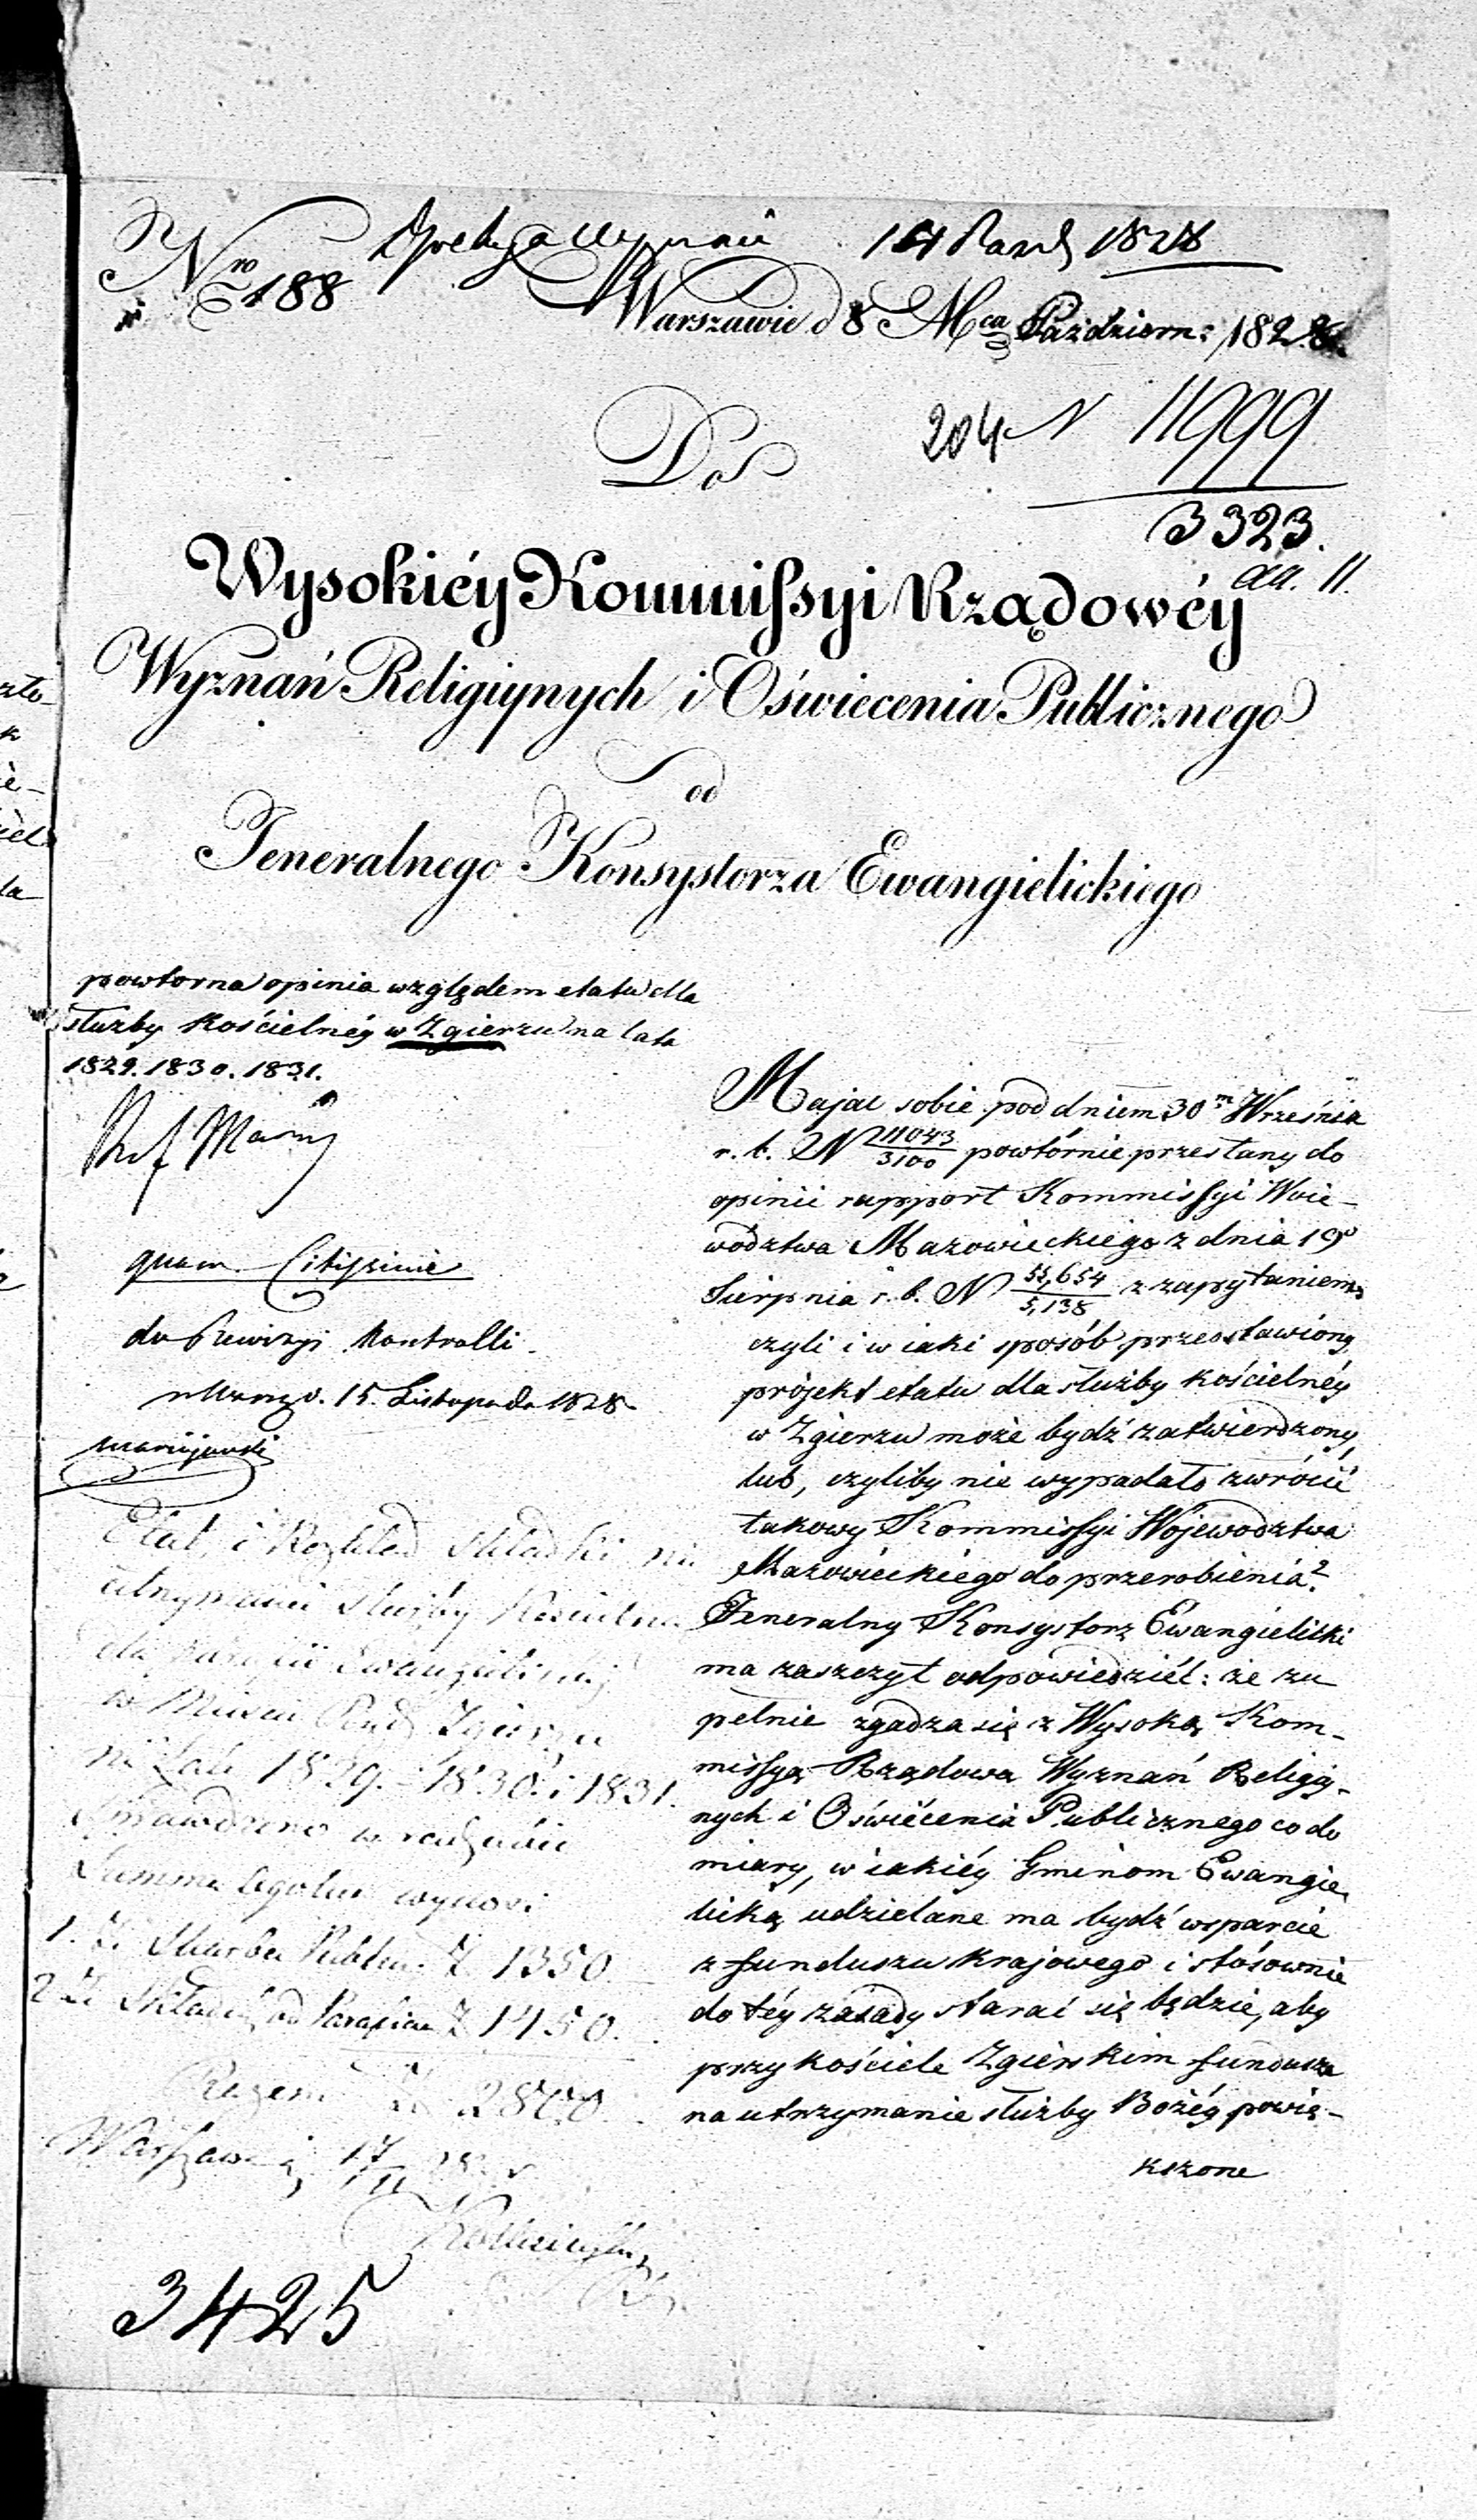 Nro 188
14 Paźd 1828
w Warszawie d 8 Mca Październ: 1828.
204 N 11999
3323.
Do
Wysokiéy Kommissyi Rządowéy
Wyznań Religiynych i Oświecenia Publicznego
od
Jeneralnego Konsystorza Ewangielickiego
powtorna opinia względem etatu dla
służby Kościelnéy w Zgierzu na lata
1829. 1830. 1831.
quam Citissime
do Rewizyi Kontrolli
15. Listopada 1828
Etat i Rozkład Składki na
utrzymanie Służby Kościelney
dla Parafii Ewangelickiéy
w Mieście Zgierzu
na Lata 1829. 1830. i 1831.
Sprawdzono w rachunku
Summa Ogolna wynosi
1. Z Skarbu Publicz. Z 1350.
2 Ze Składek od Parafian Z 1450.
Razem Z 2800
Warszawa
3425
Maiąc sobie pod dniem 30m Września
r. b. N 11043/3100 powtórnie przesłany do
opinii rapport Kommissyi Woie-
wództwa Mazowieckiego z dnia 19o
Sierpnia r. b. N 55,654/5,138 z zapytaniem
czyli i w iaki sposób przedstawiony
projekt etatu dla służby kościelnéy
w Zgierzu może bydź zatwierdzony,
lub, czyliby nie wypadało zwrócić
takowy Kommissyi Województwa
Mazowieckiego do przerobienia?
Jeneralny Konsystorz Ewangielicki
ma zaszczyt odpowiedziéć: że zu
pełnie zgadza się z Wysoką Kom-
missyą Rządową Wyznań Religiy-
nych i Oświécenia Publicznego co do
miary, w iakiéy Gminom Ewangie
lickim udzielane ma bydź wsparcie
z funduszu krajowego i stósownie
do téy zasady starać się będzie, aby
przy kościele Zgierskim fundusze
na utrzymanie służby Bożéy powię-
kszone